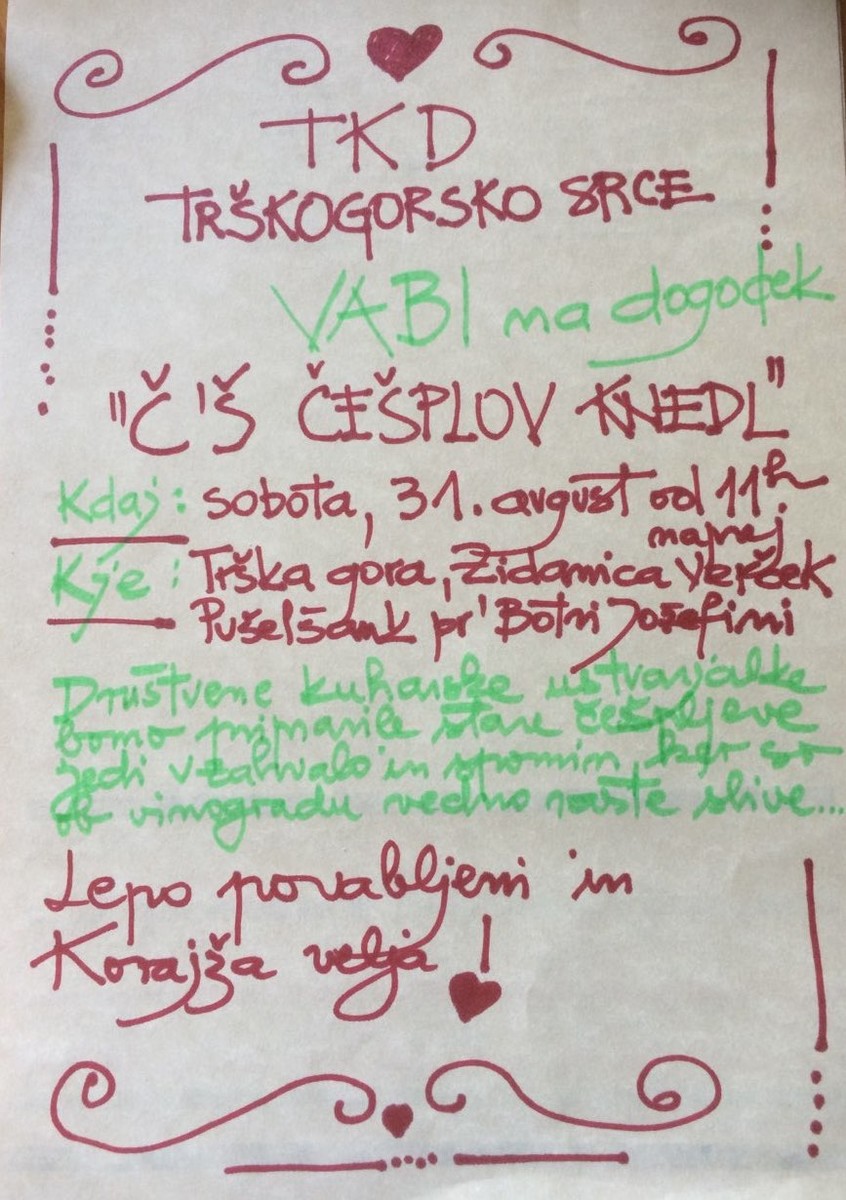 TKD
TRŠKOGORSKO SRCE
VABI na dogodek
"Č'Š ČEŠPLOV KNEDL"
Kdaj: sobota, 31. avgust od 11h
naprej
Kje: Trška gora, Zidanica Vovček
Pušelšank pr' Botri Jožefini
Društvene kuharske ustvarjalke
bomo pripravile stare češpljeve
jedi v zahvalo in spomin, ker so
ob vinogradu vedno rasle slive...
Lepo povabljeni in
Korajža velja!